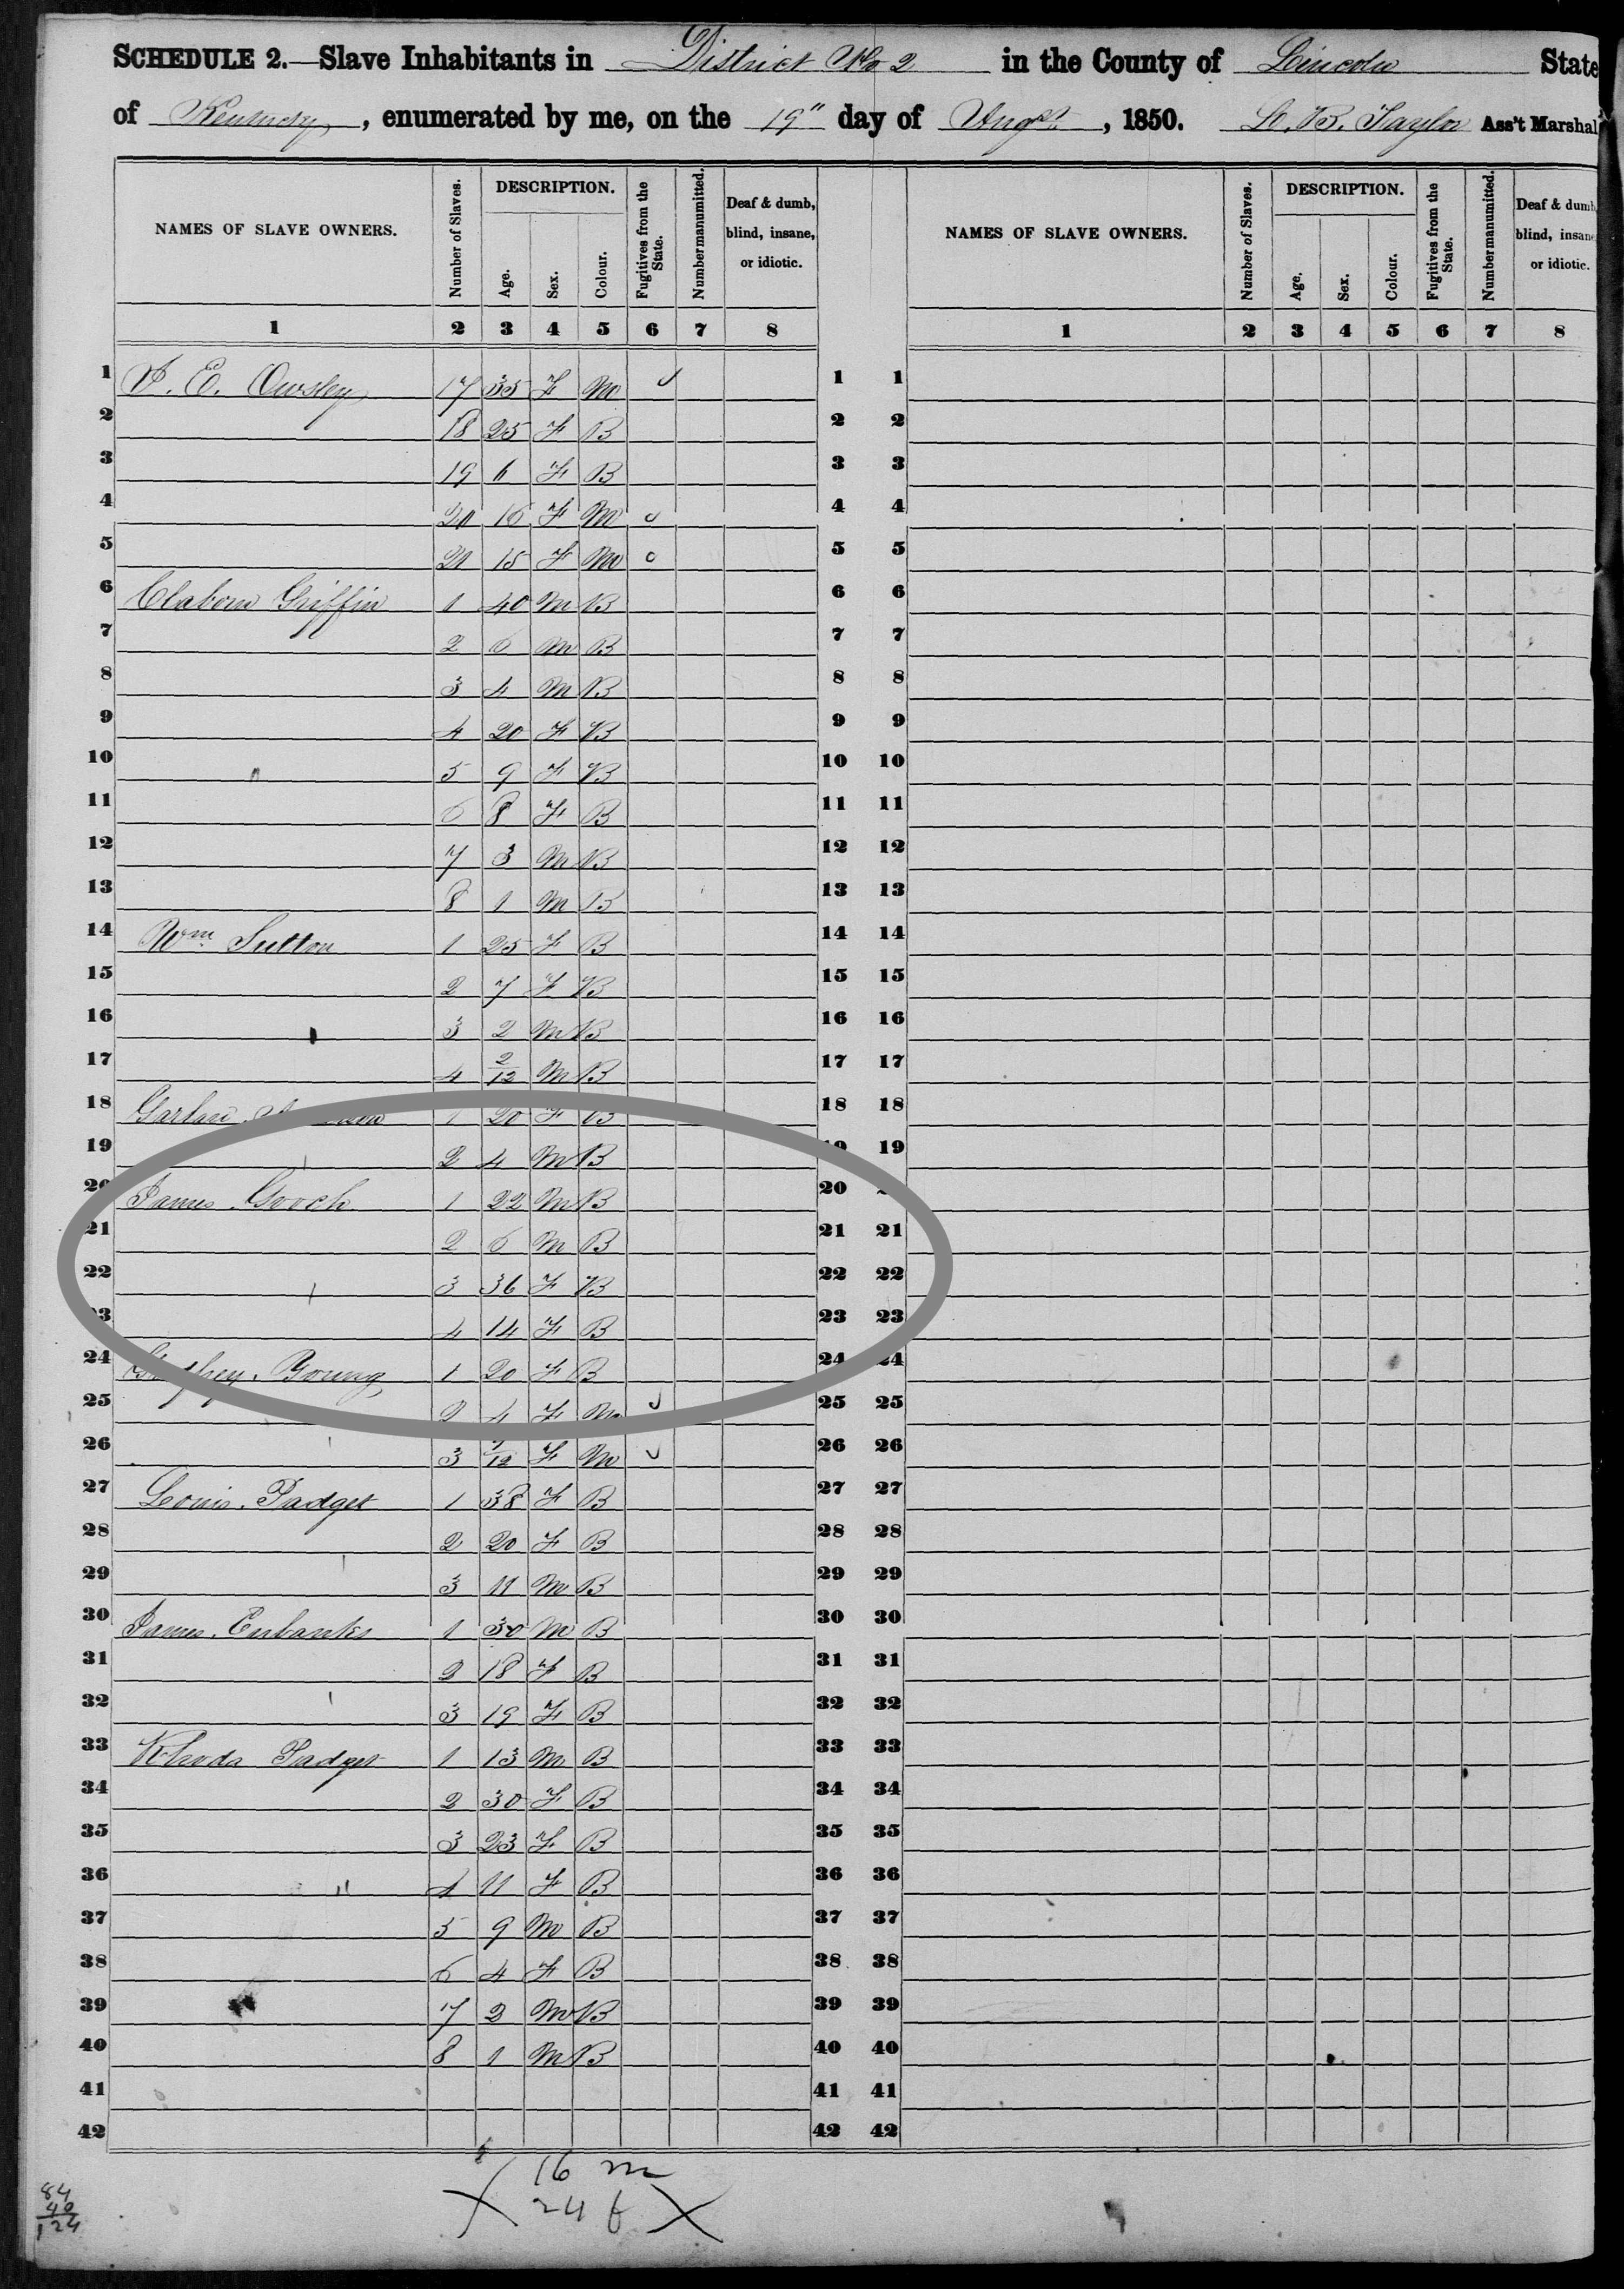 SCHEDULE 2.—Slave Inhabitants in District No 2 in the County of Lincoln State
of Kentucky, enumerated by me, on the 19" day of Augst, 1850. B. Taylor Ass't Marshal
NAMES OF SLAVE OWNERS. Number of Slaves. DESCRIPTION. Age. Sex. Colour. Fugitives from the State. Number manumitted. Deaf & dumb, blind, insane, or idiotic. NAMES OF SLAVE OWNERS. Number of Slaves. DESCRIPTION. Age. Sex. Colour. Fugitives from the State. Number manumitted. Deaf & dumb, blind, insane, or idiotic.
1 2 3 4 5 6 7 8 1 2 3 4 5 6 7 8
1 E. Owsley 17 35 F M 1 1
2 18 25 F B 2 2
3 19 6 F B 3 3
4 20 16 F M 4 4
5 21 15 F M 5 5
6 Claborn Griffin 1 40 M B 6 6
7 2 6 M B 7 7
8 3 4 M B 8 8
9 4 20 F B 9 9
10 5 9 F B 10 10
11 6 8 F B 11 11
12 7 3 M B 12 12
13 8 1 M B 13 13
14 Wm Sutton 1 25 F B 14 14
15 2 7 F B 15 15
16 3 2 M B 16 16
17 4 2/12 M B 17 17
18 1 20 F B 18 18
19 2 4 M B 19 19
20 James Gooch 1 22 M B 20
21 2 6 M B 21 21
22 3 36 F B 22 22
23 4 14 F B 23 23
24 Young 1 20 F B 24 24
25 2 4 F M 25 25
26 3 /12 F M 26 26
27 Louis Padget 1 38 F B 27 27
28 2 20 F B 28 28
29 3 11 M B 29 29
30 James Eubanks 1 30 M B 30 30
31 2 18 F B 31 31
32 3 19 F B 32 32
33 Rhoda Padget 1 13 M B 33 33
34 2 30 F B 34 34
35 3 23 F B 35 35
36 4 11 F B 36 36
37 5 9 M B 37 37
38 6 4 F B 38 38
39 7 2 M B 39 39
40 8 1 M B 40 40
41 41 41
42 42 42
16 m
24 f
84
40
124